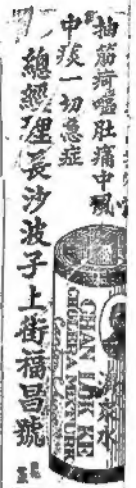 抽筋疴嘔肚痛中風
中痰一切急症
總經理長沙波子上街福昌號
CHAN LAK KE
CHOLERA MIXTURE